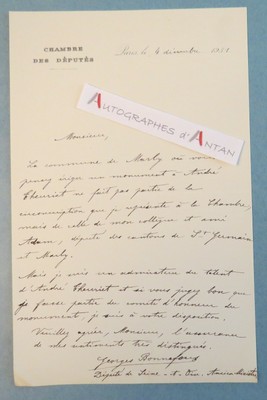 CHAMBRE
DES DÉPUTÉS
Paris le 6 décembre 1911
AUTOGRAPHES d'ANTAN
Monsieur,
La commune de Marly où vous
pensez ériger un monument à André
Theuriet ne fait pas partie de la
circonscription que je représente à la Chambre,
mais de celle de mon collègue et ami
Adam, député des cantons de St Germain
et Marly.
Mais je suis un admirateur du talent
d'André Theuriet et si vous jugez bon que
je fasse partie du comité d'honneur du
monument, je suis à votre disposition.
Veuillez agréer, Monsieur, l'assurance
de mes sentiments très distingués.
Georges Bonnefous
Député de Seine-et-Oise. Ancien